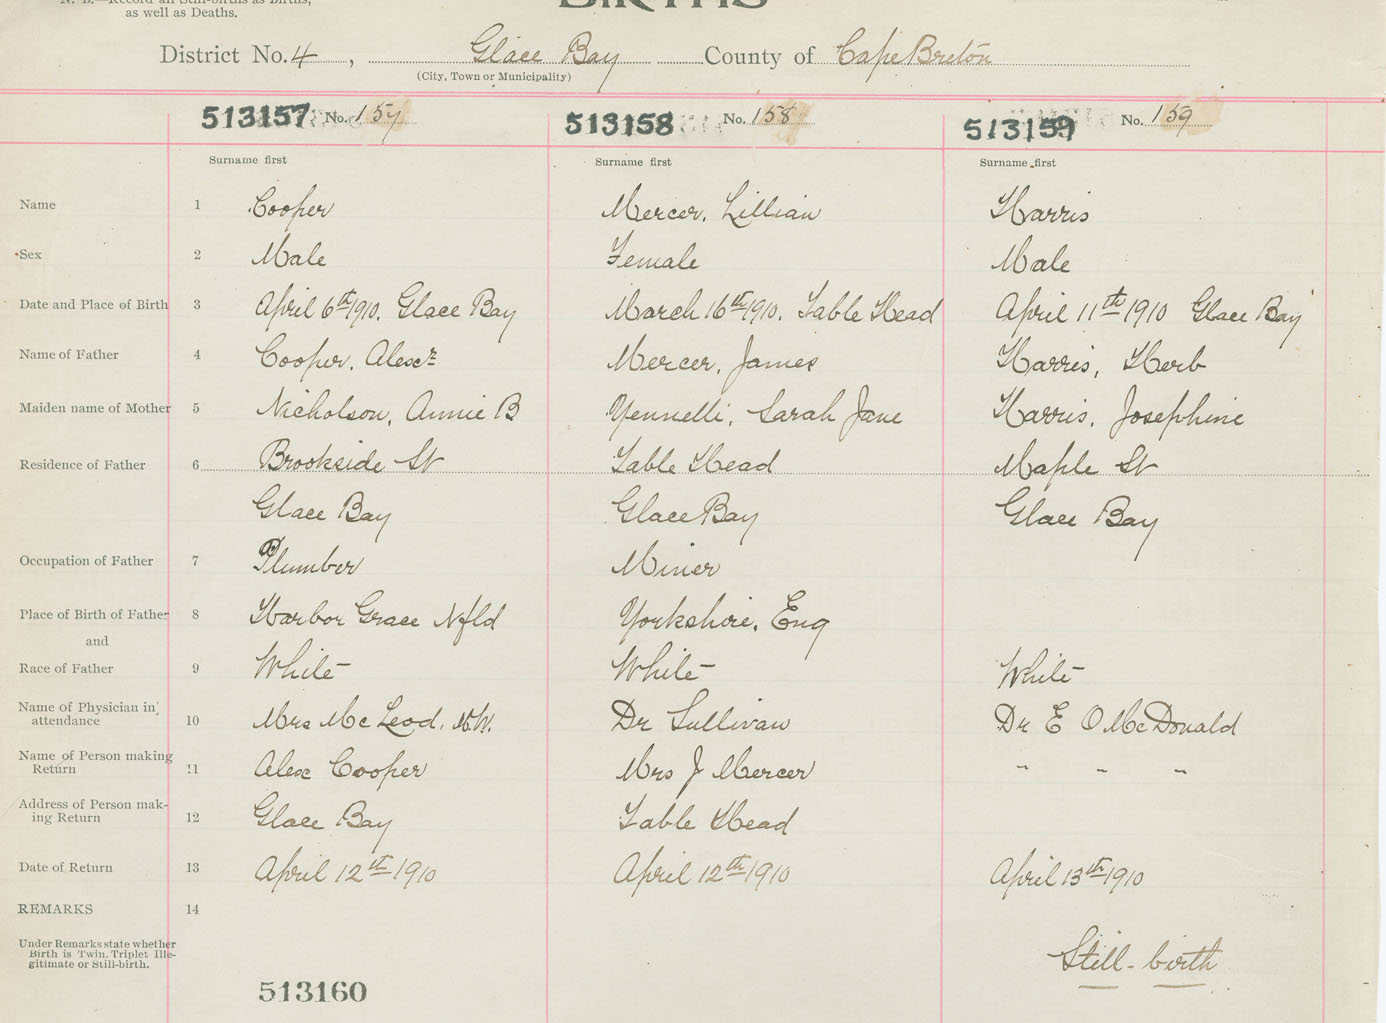 N. B.—Record all Still-births as Births,
as well as Deaths.
BIRTHS
District No. 4, Glace Bay County of Cape Breton
(City, Town or Municipality)
513157 No. 157 513158 No. 158 513159 No. 159
Surname first Surname first Surname first
Name 1 Cooper Mercer, Lillian Harris
Sex 2 Male Female Male
Date and Place of Birth 3 April 6th 1910. Glace Bay March 16th 1910. Table Head April 11th 1910 Glace Bay
Name of Father 4 Cooper, Alexr Mercer, James Harris, Herb
Maiden name of Mother 5 Nicholson, Annie B Yennelli, Sarah Jane Harris, Josephine
Residence of Father 6 Brookside St Table Head Maple St
Glace Bay Glace Bay Glace Bay
Occupation of Father 7 Plumber Miner
Place of Birth of Father 8 Harbor Grace Nfld Yorkshire, Eng
and
Race of Father 9 White White White
Name of Physician in
attendance 10 Mrs McLeod, M.W. Dr Sullivan Dr E O McDonald
Name of Person making
Return 11 Alex Cooper Mrs J Mercer " " "
Address of Person mak-
ing Return 12 Glace Bay Table Head
Date of Return 13 April 12th 1910 April 12th 1910 April 13th 1910
REMARKS 14
Under Remarks state whether
Birth is Twin, Triplet Ille-
gitimate or Still-birth.
Still-birth
513160